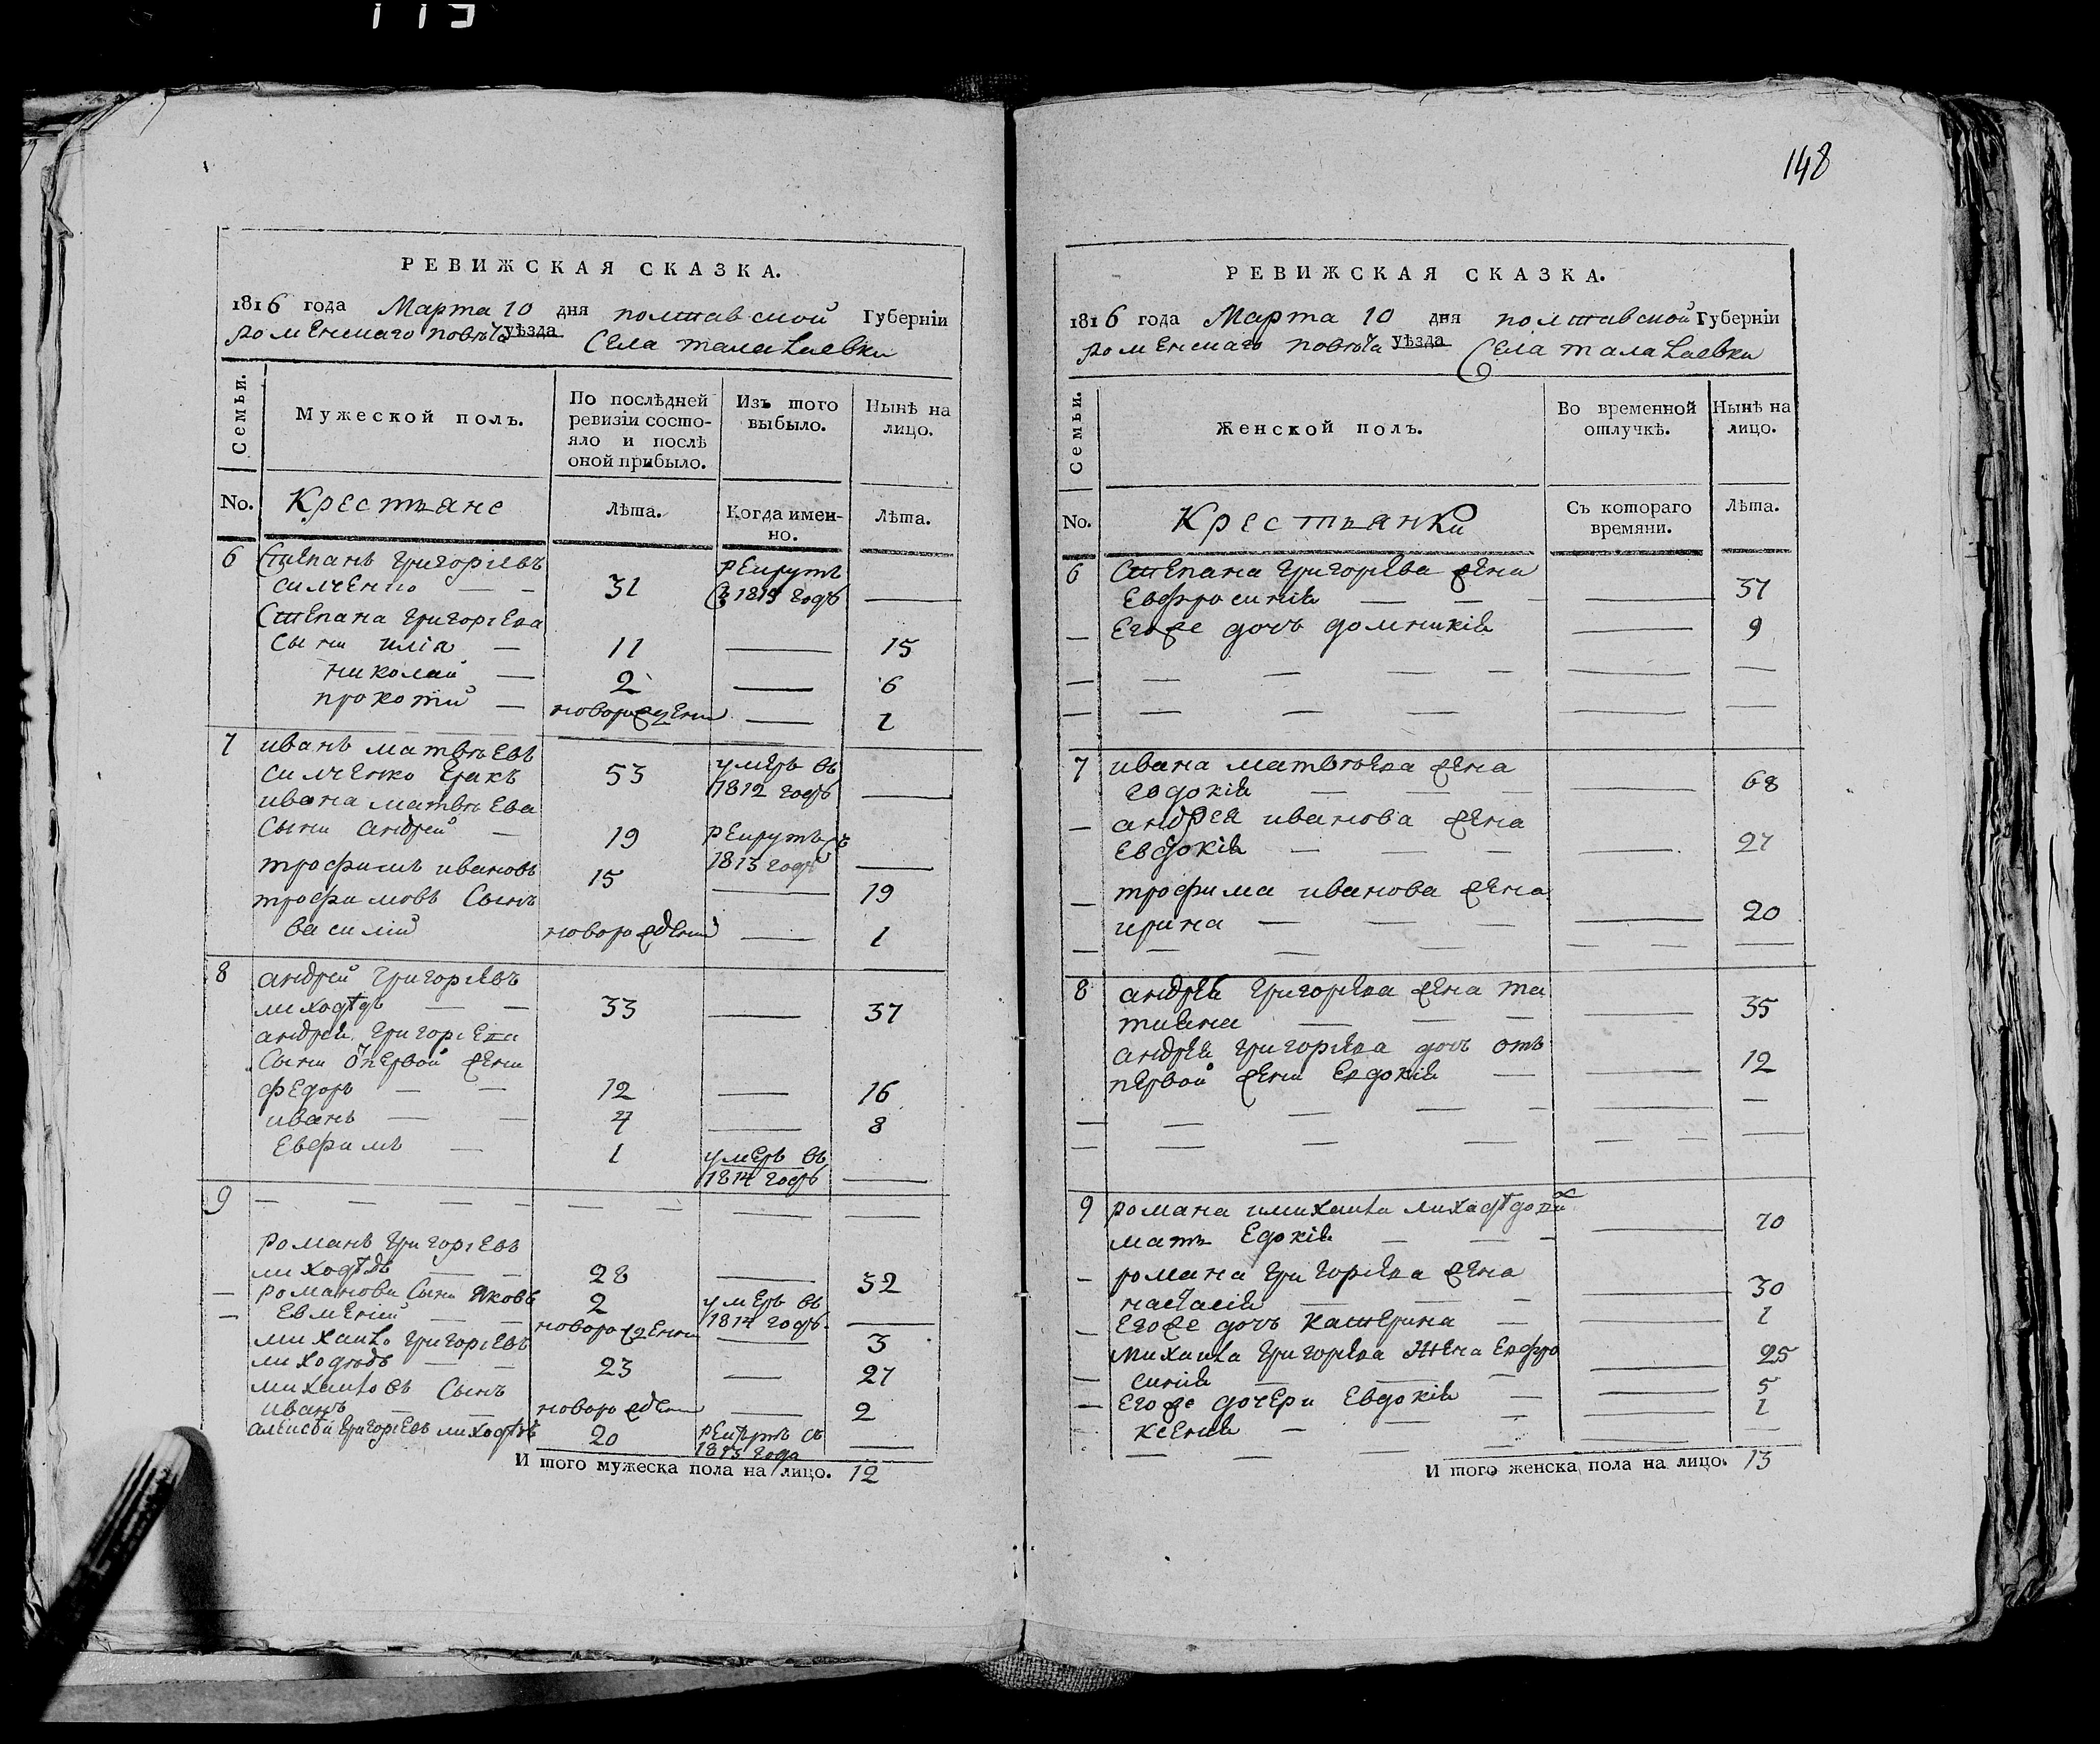 148
РЕВИЖСКАЯ СКАЗКА.
1816 года Марта 10 дня полтавской Губерніи
роменскаго повѣта уѣзда Села талалаевки
Семьи.
Мужеской полъ.
По послѣдней
ревизіи состо-
яло и послѣ
оной прибыло.
Изъ того
выбыло.
Нынѣ на
лицо.
No.
Крестьяне
Лѣта.
Когда имен-
но.
Лѣта.
6 Степанъ григоріевъ
силченко — — 31 рекрутъ
в 1813 годѣ —
Степана григоріева
сыни илія — 11 — 15
николай — 2 — 6
прокопій — новорожденни — 1
7 иванъ матвѣевъ
силченко 53 умеръ въ
1812 годѣ —
ивана матвѣева
сыни андрей — 19 рекрутъ въ
1813 годѣ —
трофимъ ивановъ 15 — 19
трофимовъ сынъ
василій новорожденій — 1
8 андрей григоріевъ
лиходѣдъ — — 33 — 37
андрея григоріева
сыни от первой жени
федоръ — — 12 — 16
иванъ — — 4 — 8
евфимъ — 1 умеръ въ
1814 годѣ —
9 — — — — — — — — —
романъ григоріевъ
лиходѣдъ — — 28 — 32
— романови сыни яковъ 2 умеръ въ
1814 годѣ —
— евмений — — новорожденни — 3
михаило григоріевъ
лиходѣдъ — — 23 — 27
михаиловъ сынъ
иванъ — — новорожденни — 2
алексѣй григоріевъ лиходѣдъ 20 рекрутъ съ
1813 года —
И того мужеска пола на лицо. 12
РЕВИЖСКАЯ СКАЗКА.
1816 года Марта 10 дня полтавской Губерніи
роменскаго повѣта уѣзда Села талалаевки
Семьи.
Женской полъ.
Во временной
отлучкѣ.
Нынѣ на
лицо.
No.
Крестьянки
Съ котораго
времяни.
Лѣта.
6 Степана григорева жена
Евфросинія — — — — 37
— Егоже дочь домникія — 9
— — — — — —
— — — — — —
7 ивана матвѣева жена
евдокія — — — — 68
— андрея иванова жена
евдокія — — — — 27
— трофима иванова жена
ирина — — — — 20
— — — — — —
8 андрея григорева жена та
тияна — — — — 35
андрея григорева дочь отъ
первой жени евдокія — — 12
— — — — — —
— — — — — —
9 романа имихаила лиходѣдови
мать Едокія — — — — 70
— романа григорева жена
настасія — — — — 30
— Егоже дочь катерина — — 1
михаила григорева жена евфро
— синія — — — — 25
— Егоже дочери Евдокія — — 5
ксения — — — — 1
— — — — —
И того женска пола на лицо. 13